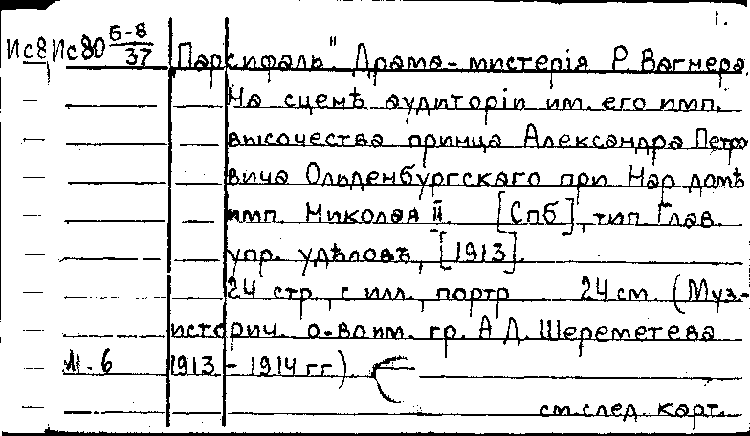 1.
Ис8 Ис80 Б-8/37 Парсифаль". Драма-мистерія Р. Вагнера.
На сценѣ аудиторіи им. его имп.
высочества принца Александра Петро
вича Ольденбургскаго при Нар домѣ
имп. Николая II. [Спб], тип Глав.
упр. удѣловъ, [1913].
24 стр, с илл, портр 24 см. (Муз.-
историч. о-во им. гр. А Д. Шереметева
М-6 1913 - 1914 гг).
см. след. карт.